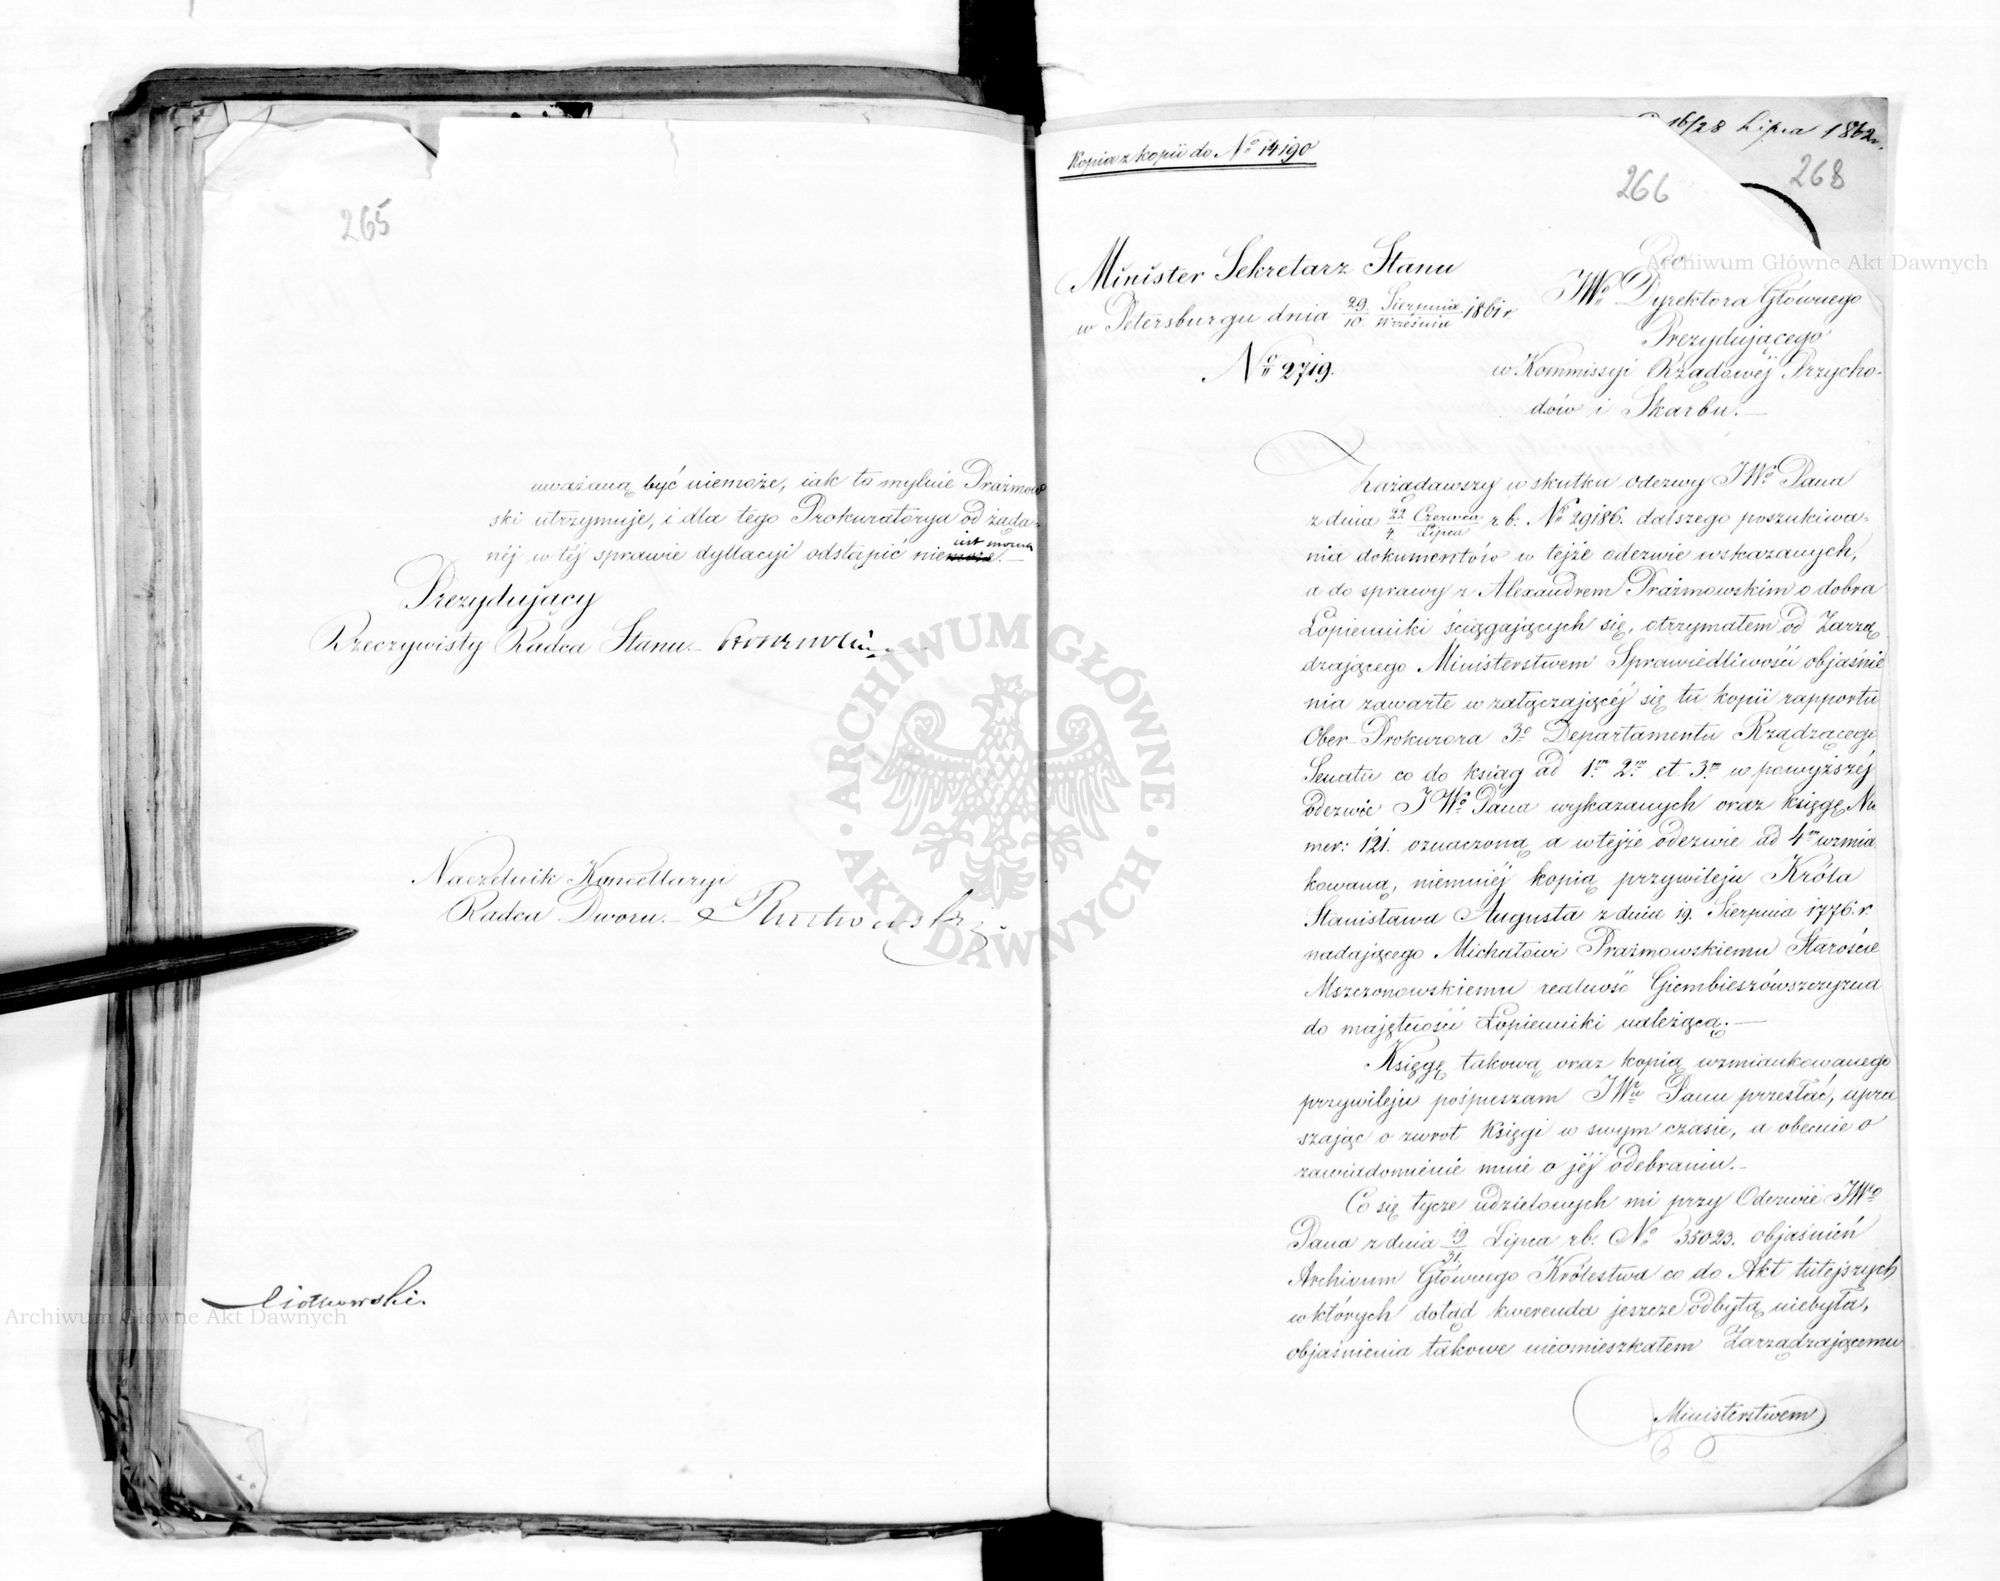 265
uważaną być niemoże, iak to mylnie Prażmow
ski utrzymuje, i dla tego Prokuratorya od żąda-
néj w téj sprawie dyllacyi odstąpić nie
Prezydujący
Rzeczywisty Radca Stanu.
Naczelnik Kancellaryi
Radca Dworu.
16/28 Lipca 1862 r.
Kopia z kopii do No 14190
266
268
Minister Sekretarz Stanu
w Petersburgu dnia 29 Sierpnia / 10 Września 1861 r
No 2719.
Do
JWo Dyrektora Głównego
Prezydującego
w Kommissyi Rządowéj Przycho-
dów i Skarbu.
Zażądawszy w skutku odezwy JWo Pana
z dnia 22 Czerwca / 4 Lipca r b: No 29186. dalszego poszukiwa-
nia dokumentów w tejże odezwie wskazanych,
a do sprawy z Alexandrem Prażmowskim o dobra
Łopienniki ściągających się, otrzymałem od Zarzą
dzającego Ministerstwem Sprawiedliwości objaśnie
nia zawarte w załączającéj się tu kopii rapportu
Ober-Prokurora 3o Departamentu Rządzącego
Senatu co do ksiąg ad 1m 2m et. 3m w powyższéj
odezwie JWo Pana wykazanych oraz księgę Nu
mer: 121. oznaczoną a w tejże odezwie ad 4m wzmia
kowaną, niemniéj kopią przywileju Króla
Stanisława Augusta z dnia 19. Sierpnia 1776. r.
nadającego Michałowi Prażmowskiemu Staroście
Mszczonowskiemu realność Giembieszówszczyzna
do majętności Łopienniki należącą.
Księgę takową oraz kopią wzmiankowanego
przywileju pośpieszam JWu Panu przesłać, upra
szając o zwrot Księgi w swym czasie, a obecnie o
zawiadomienie mnie o jéj odebraniu.
Co się tycze udzielonych mi przy Odezwie JWo
Pana z dnia 19/31 Lipca r b: No 35023. objaśnień
Archivum Głównego Królestwa co do Akt tutejszych
w których dotąd kwerenda jeszcze odbytą niebyła,
objaśnienia takowe nieomieszkałem Zarządzającemu
Ministerstwem
Archiwum Główne Akt Dawnych
Archiwum Główne Akt Dawnych
ARCHIWUM GŁÓWNE
AKT DAWNYCH